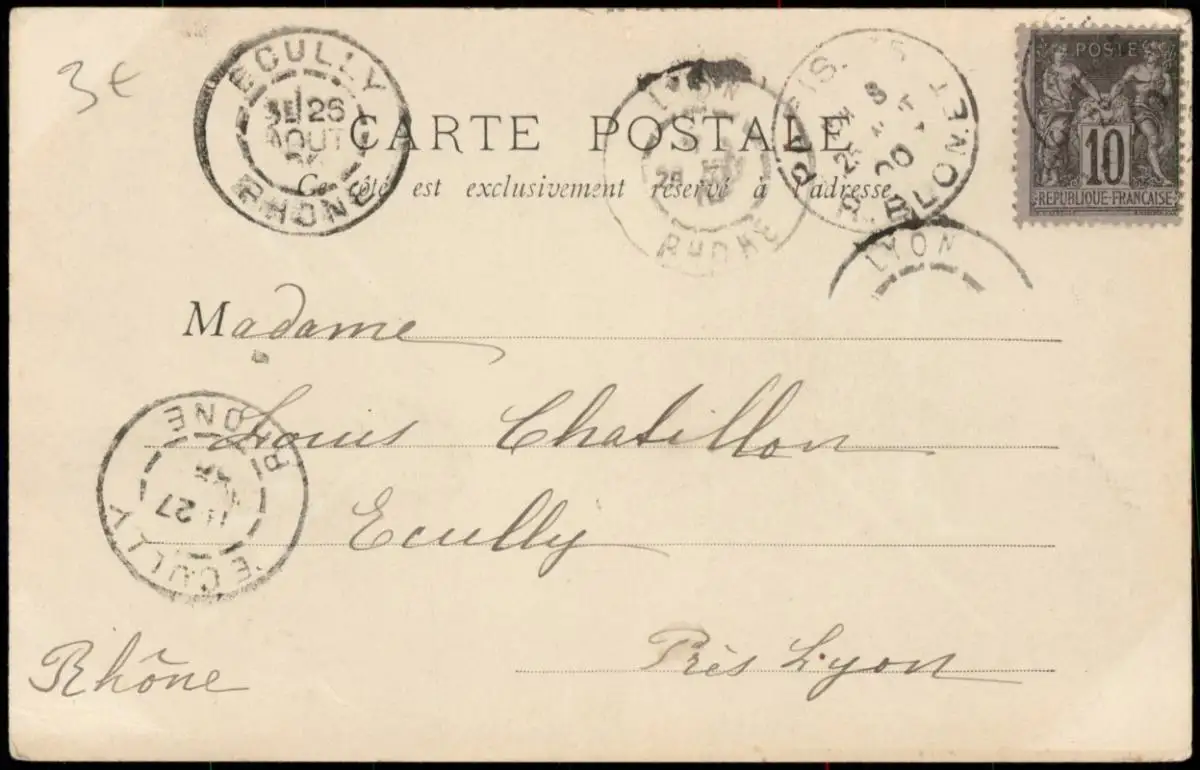 3€
ECULLY
26
AOUT
RHONE
CARTE POSTALE
Ce côté est exclusivement réservé à l'adresse
LYON
RHONE
PARIS
POSTES
10
RÉPUBLIQUE FRANÇAISE
LYON
Madame
Louis Chatillon
Ecully
Près Lyon
Rhône
RHONE
27
ECULLY